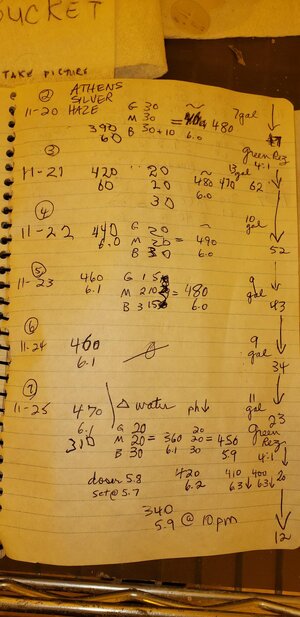 BUCKET
TAKE PICTURE
② ATHENS
SILVER
HAZE
11-20
390
60
G 30
M 30
B 30+10
= ~ 480
6.0
7gal
green Rez
4:1
③
11-21 420 20 ~ 13 gal
60 20 480 470 62
30 6.0
④
11-22 490 G 20 10 gal
6.0 M 20 = 490
B 30 6.0 52
⑤
11-23 460 G 15 9 gal
6.1 M 210 = 480
B 3 6.0 43
⑥
11-24 460 9 gal
6.1 34
⑦
11-25 470 Δ water ph↓ 11 gal
6.1 G 20 20 23
310 M 20 = 360 20 = 450 Green Rez
B 30 6.1 30 5.9 4:1
doser 5.8 420 410 400 20
set@ 5.7 6.2 6.3↓ 6.3↓
340
5.9 @ 10pm
12